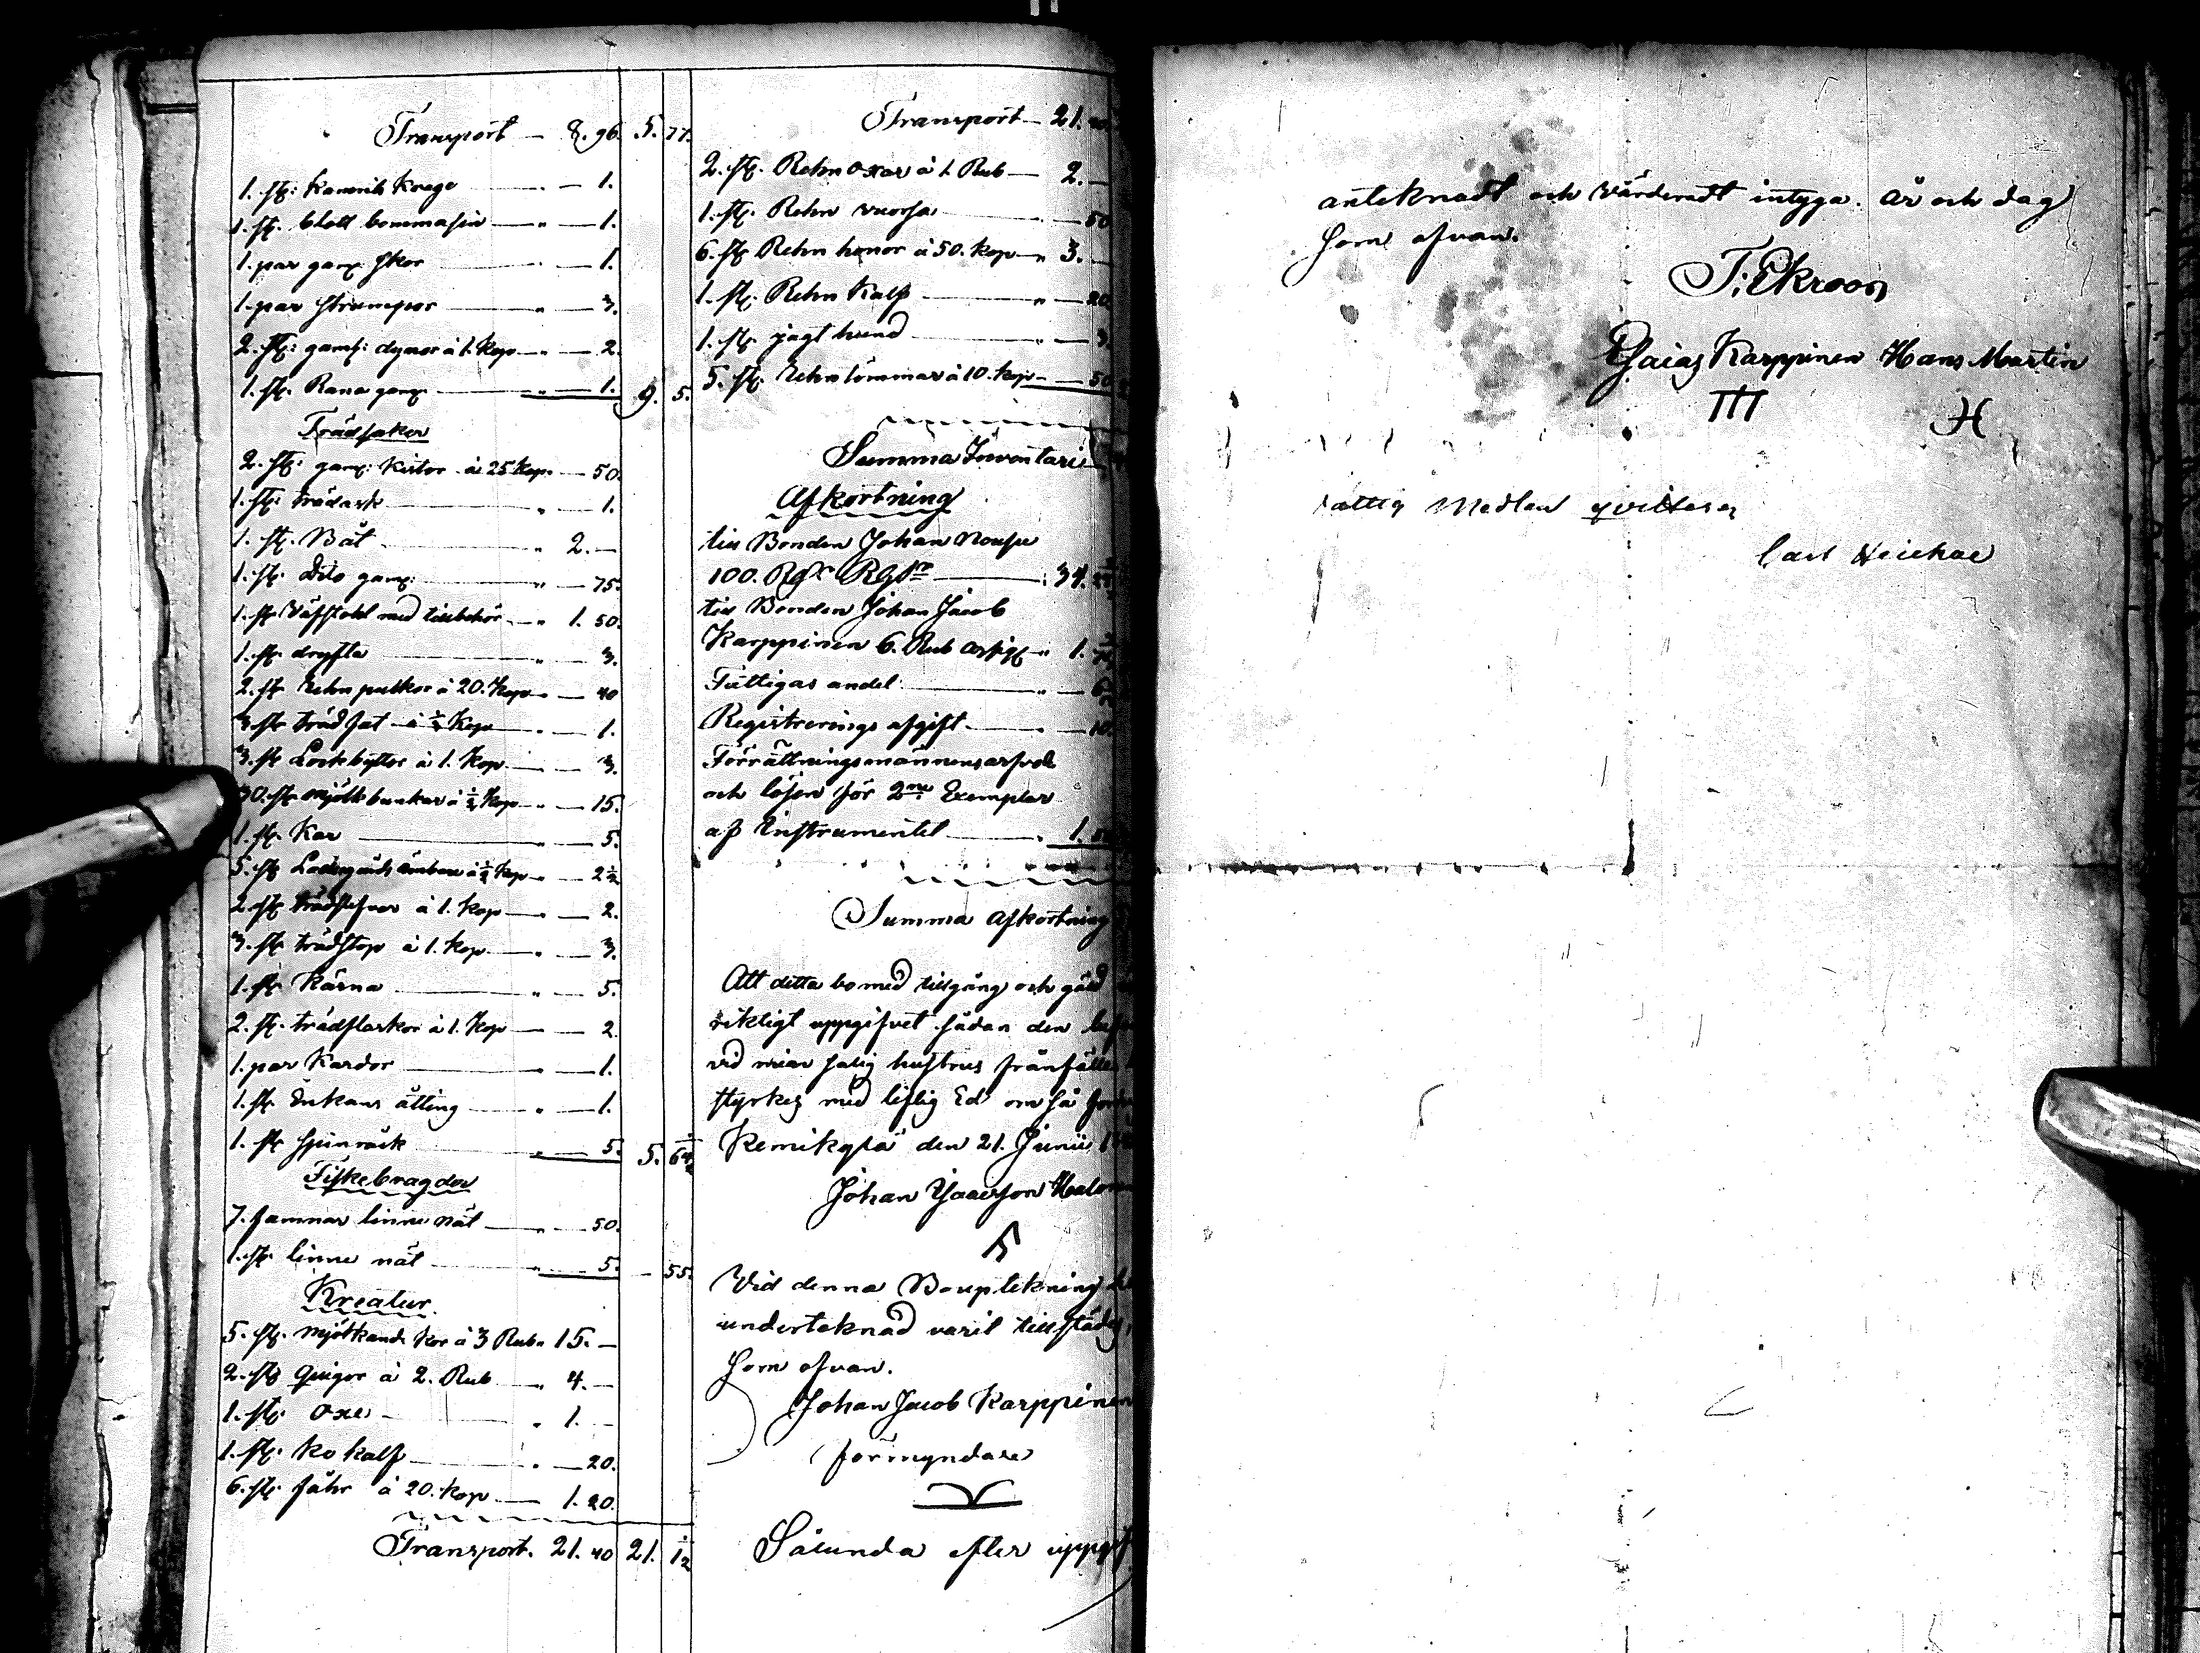 Transport — 8. 96. 5. 77.
1. st: Kamrik Krage — 1.
1. st. blott bommasin — " — 1.
1. par gam: skor — " — 1.
1. par strumpor — " — 3.
2. st: gaml: dynor à 1. kop — " — 2.
1. st. Rana gam: — " — 1. 9. 5.
Trädsaker
2. st: gam: Kistor à 25 Kop. — 50.
1. st: trädask — " — 1.
1. st. Båt — " 2. —
1. st. Dito gam: — " — 75.
1. st Väfstohl med tillbehör — " 1. 50.
1. st. dryfta — " — 3.
2. st Rehn pulkor à 20. Kop — " — 40
3. st träd fat à ½ Kop — " — 1.
3. st Lockbyttor à 1. Kop — 3.
30. st mjölk bunkar à ½ Kop — " — 15.
1. st. Kar — 5.
5. st. Ladugårds ämbare à ½ Kop — " — 2½
2. st. träd à 1. Kop — " — 2.
3. st trädstop à 1. Kop — " — 3.
1. st Kärna — " — 5.
2. st. trädflaskor à 1. Kop — 2.
1. par Kardor — " — 1.
1. st. Enkans åtting — " — 1.
1. st spinråck — " — 5. 5. 64½
Fiskebragder
7. famnar linne nät — " — 50.
1. st. linne nät — " — 5. — 55.
Kreatur.
5. st. mjölkande kor à 3 Rub " 15. —
2. st Qvigor à 2. Rub — " 4. —
1. st. Oxe — " 1. —
1. st. Ko kalf — " — 20.
6. st. fåhr à 20. kop — 1. 20.
Transport. 21. 40 21. ½
Transport — 21.
2. st. Rehn oxar à 1. Rub — 2. —
1. st. Rehn vuorsa — " — 50
6. st Rehn honor à 50. kop — " 3. —
1. st. Rehn Kalf — " — 20
1. st. jagt hund — " — 3.
5. st. Rehn tömmar à 10. kop — — 50
Summa Inventarie
Afkortning
till Bonden Johan
100. Rdr RGds — : 34.
till Bonden Johan Jacob
Karppinen 6. Rub assig " 1.
Fattigas andel — " — 6
Registrerings afgift — — 10.
Förrättningsmännens arfvode
och lösen för 2ne Exemplar
af Instrumentet — " 1.
Summa afkortning
Att detta bo med tillgång och gäld
riktigt uppgifvet sådan den
vid min salig hustrus frånfälle
styrkes med liflig Ed om så
Kemikylä den 21. Junii
Johan Isacsson
Vid denna Bouptekning
undertecknad varit tillstädes,
som ofvan.
Johan Jacob Karppinen
förmyndare
Sålunda efter uppgift
anteknadt och Värderadt intyga. år och dag
som ofvan.
J. Ekroos
Esaias Karppinen Hans Martin
III H
fattig Medlen qvitteras
Carl Heickel